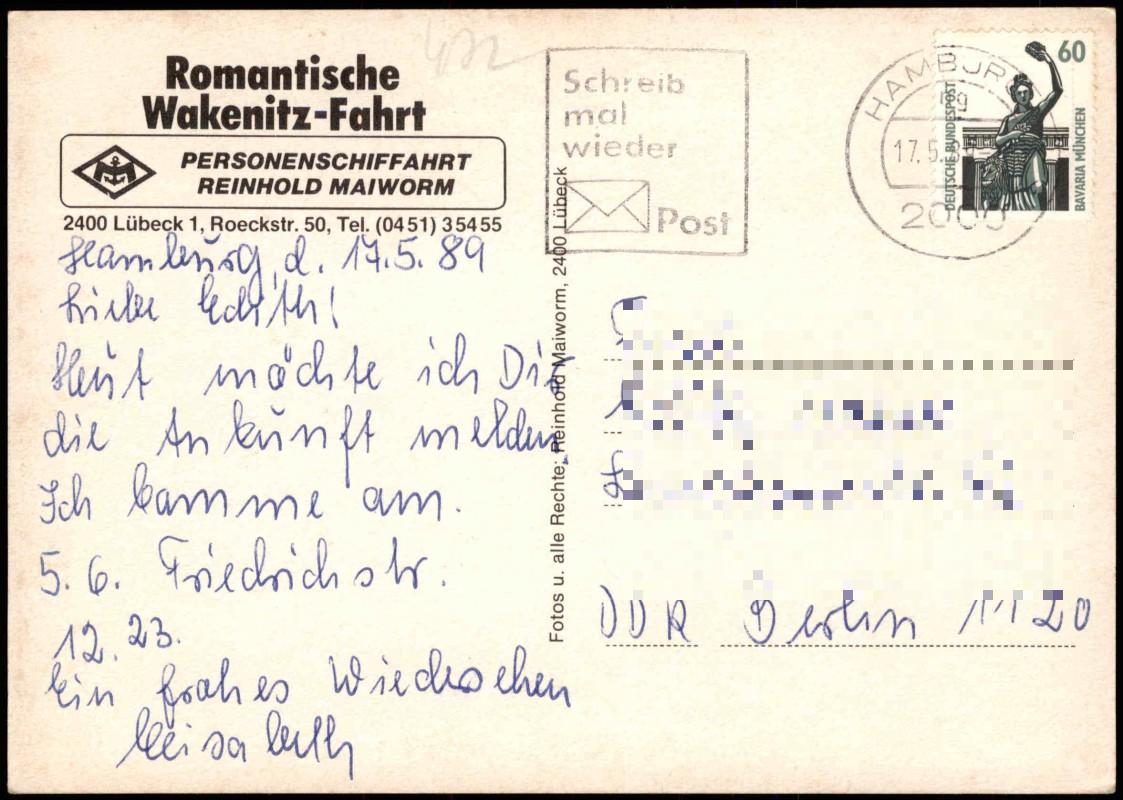 Romantische
Wakenitz-Fahrt
PERSONENSCHIFFAHRT
REINHOLD MAIWORM
2400 Lübeck 1, Roeckstr. 50, Tel. (0451) 35455
Hamburg, d. 17.5.89
Liebe Edith!
Heut möchte ich Dir
die Ankunft melden.
Ich komme am.
5.6. Friedrichstr.
12.23.
Ein frohes Wiedersehen
Elisabeth
Fotos u. alle Rechte: Reinhold Maiworm, 2400 Lübeck
472
Schreib
mal
wieder
Post
HAMBURG
17.5.
2000
60
DEUTSCHE BUNDESPOST
BAVARIA MÜNCHEN
DDR Berlin 1120